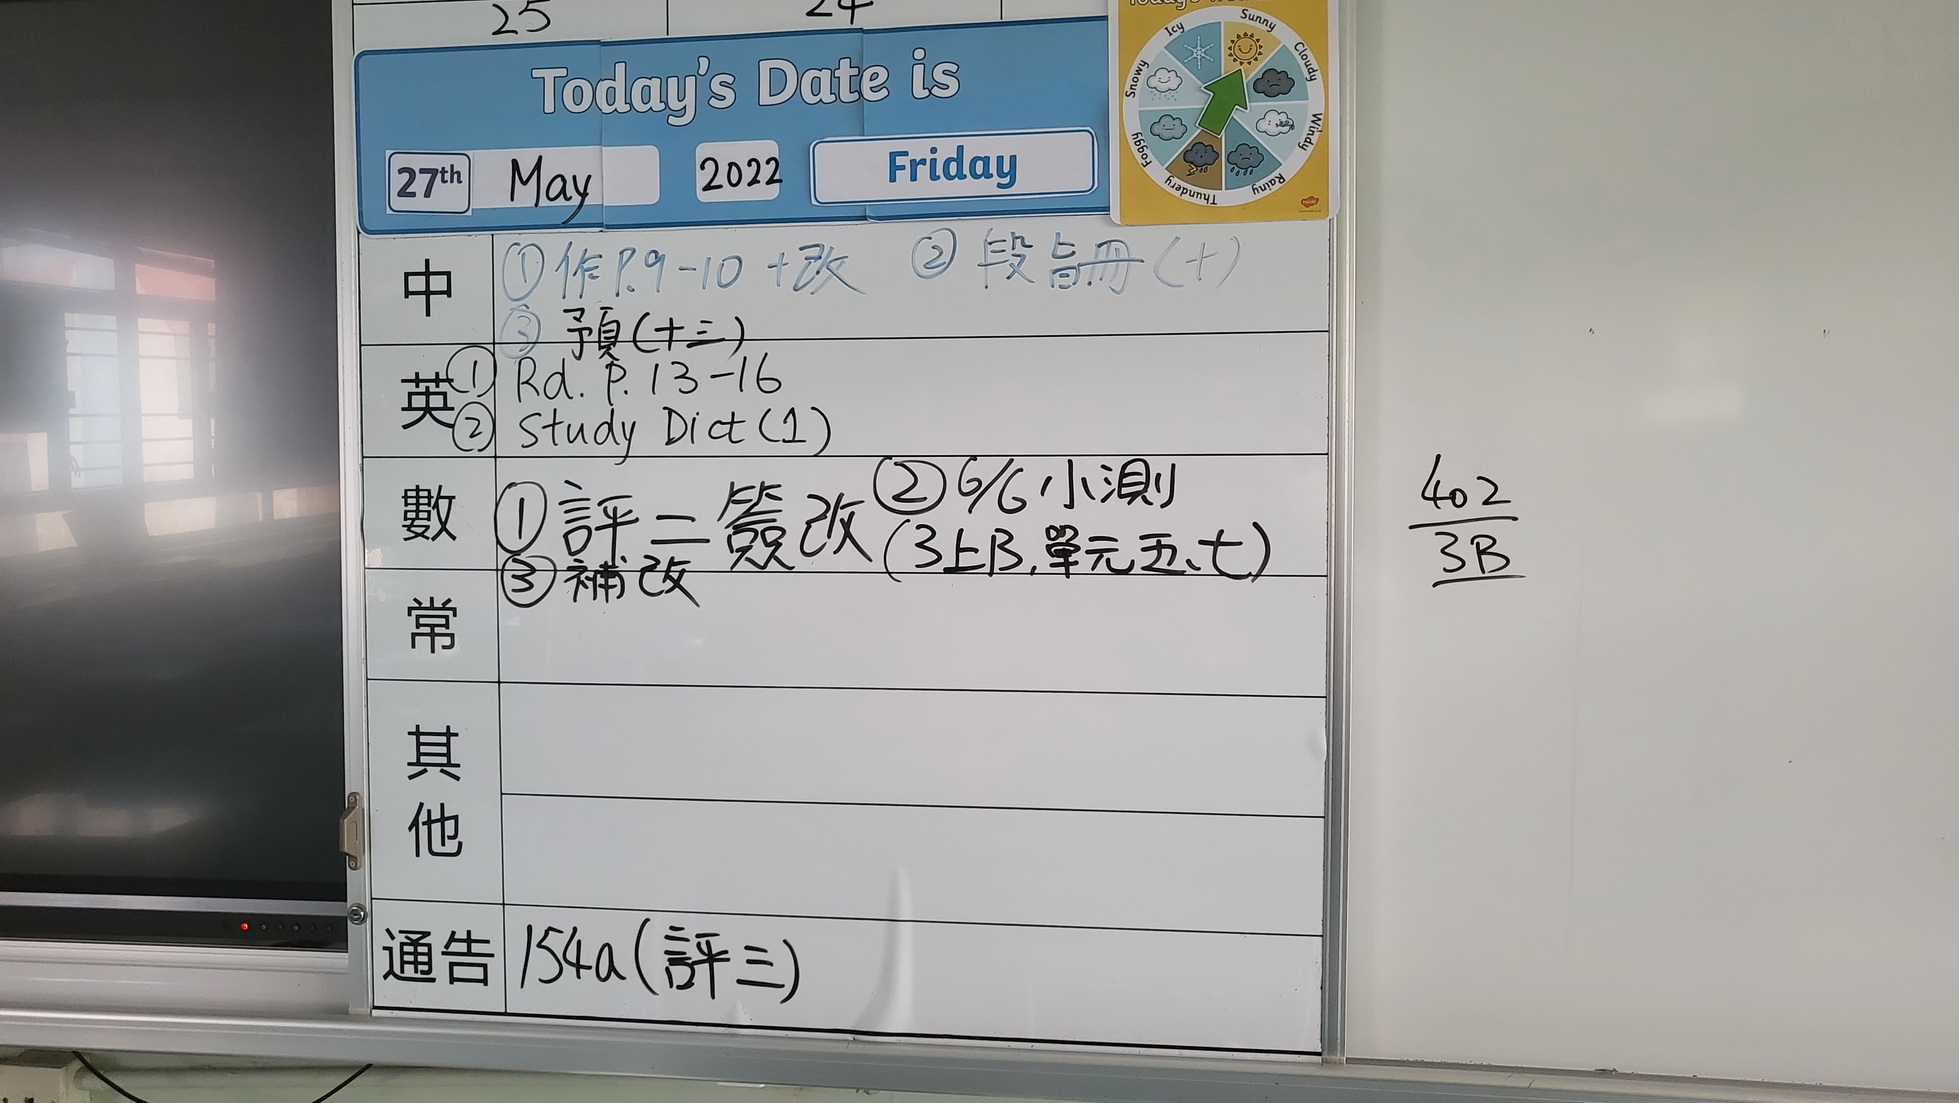 25 24
Today's Date is
27th May 2022 Friday
Sunny
Cloudy
Windy
Rainy
Thundery
Foggy
Snowy
Icy
中 ①作P.9-10 +改 ②段旨冊(十)
③ 預(十三)
英 ① Rd. P. 13-16
② Study Dict (1)
數 ①評二簽改 ②6/6 小測
(3上B, 單元五、七)
③補改
常
其他
通告 154a (評三)
402
3B